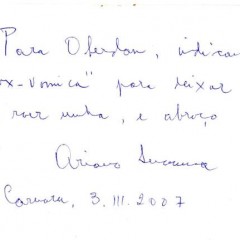 Para Oferdan, indican
ox-vomica" para deixar
roer unha, e abraço
Ariano Suassuna
Caruaru, 3.III.2007